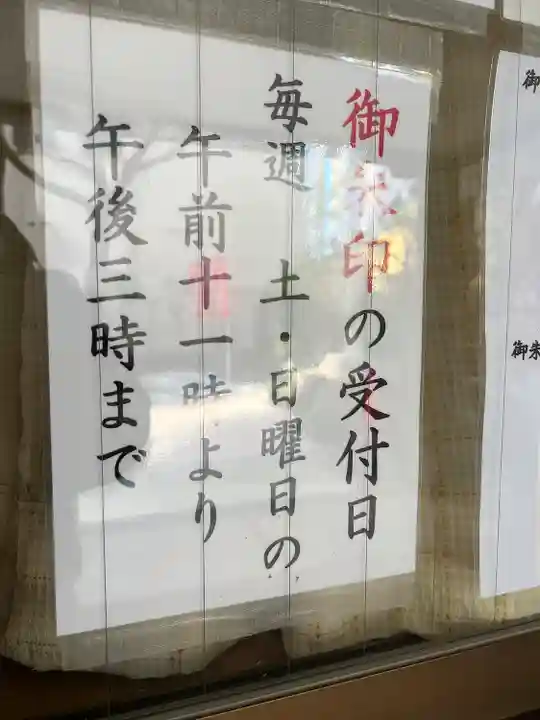 御朱印の受付日
毎週 土・日曜日の
午前十一時より
午後三時まで
御
御朱